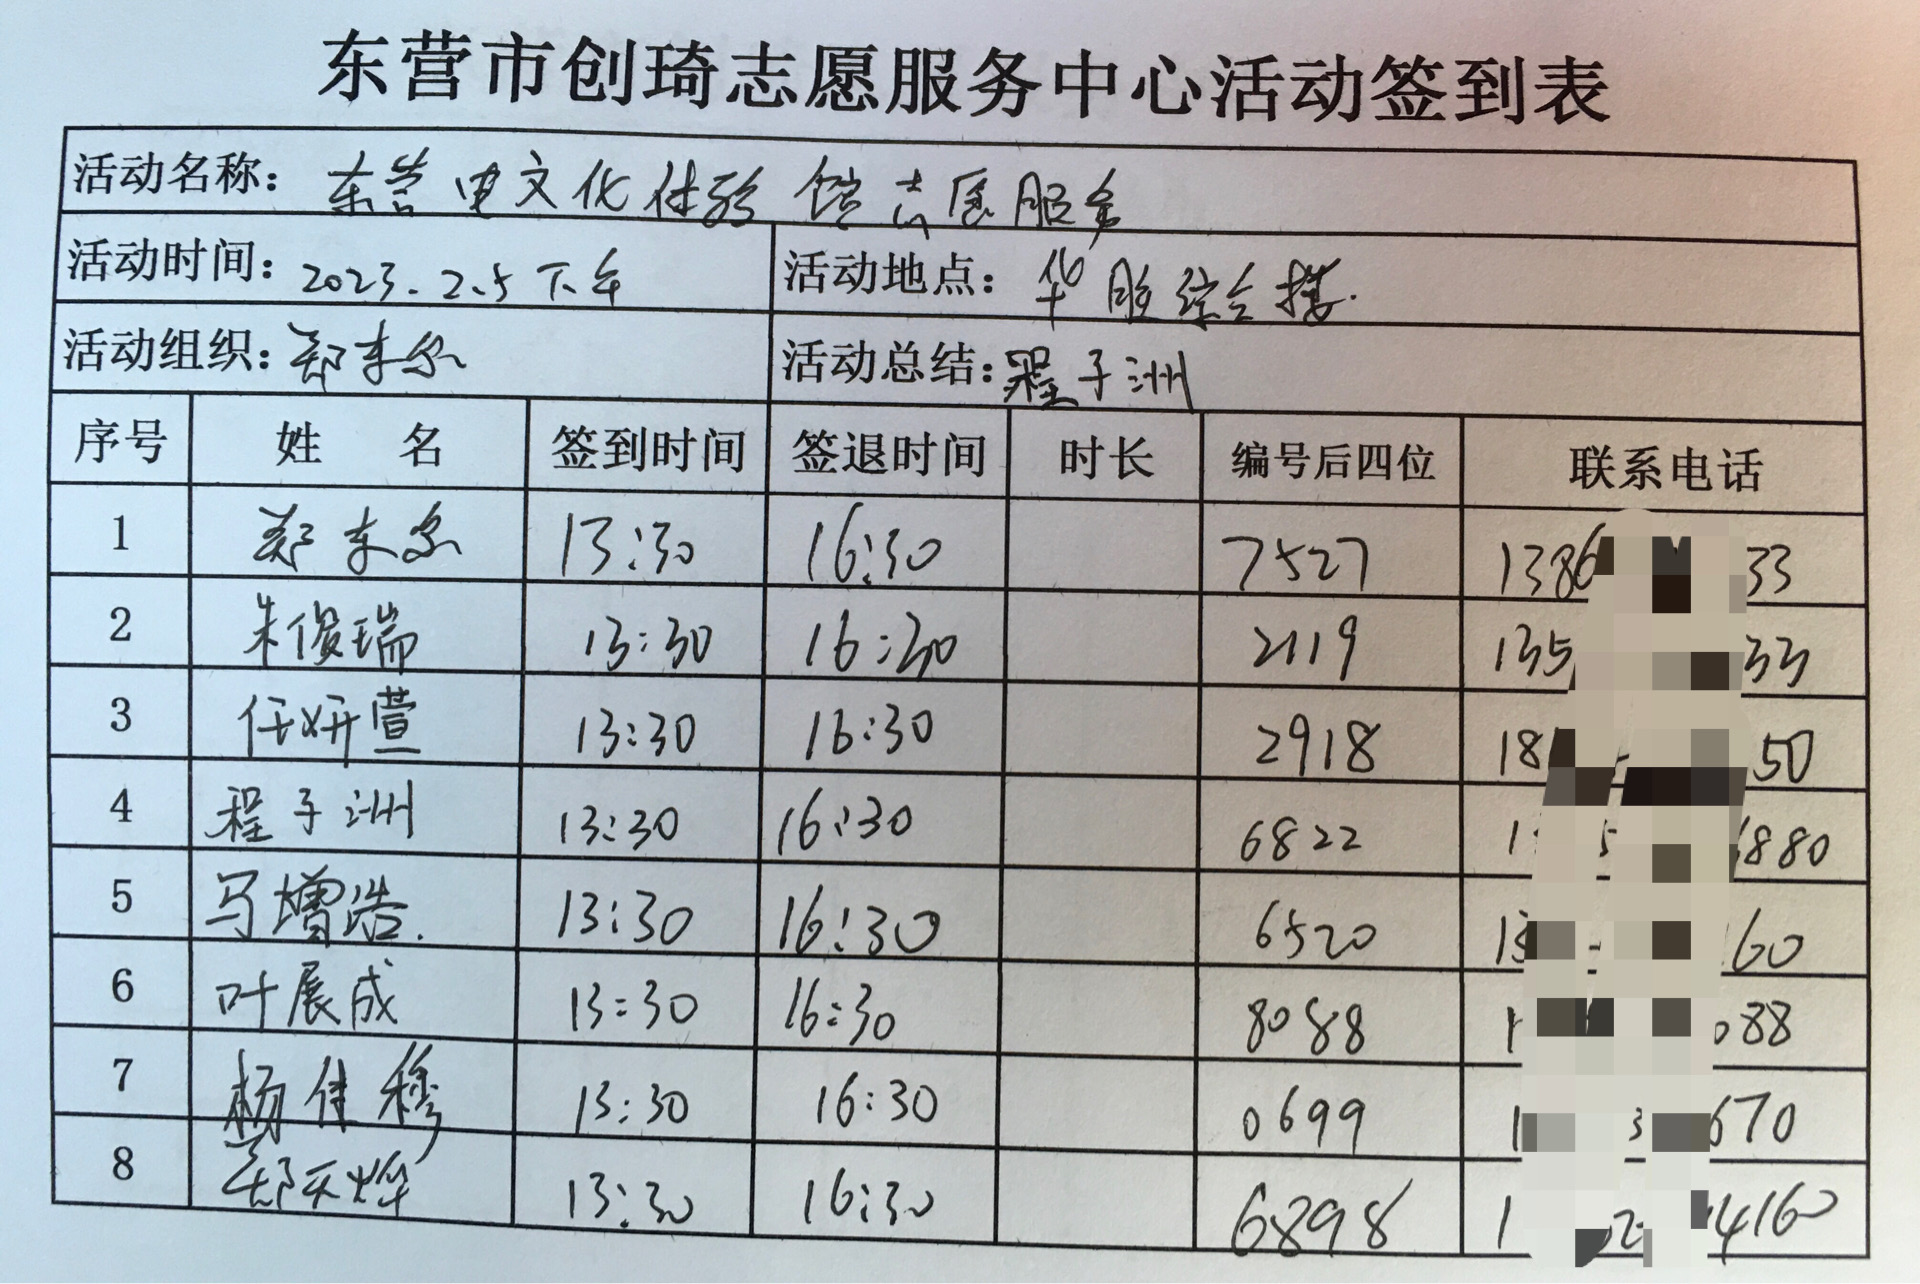 东营市创琦志愿服务中心活动签到表
活动名称：东营电文化体验馆志愿服务
活动时间：2023.2.5下午 活动地点：华胜综合楼.
活动组织：郑东参 活动总结：程子洲
序号 姓 名 签到时间 签退时间 时长 编号后四位 联系电话
1 郑东参 13:30 16:30 7527 1386 33
2 朱俊瑞 13:30 16:30 2119 135 33
3 任妍萱 13:30 16:30 2918 18 50
4 程子洲 13:30 16:30 6822 1 880
5 马增浩. 13:30 16:30 6520 13 160
6 叶展成 13:30 16:30 8088 1 088
7 杨佳穆 13:30 16:30 0699 1 3 670
8 郑天烨 13:30 16:30 6898 1 2 4160